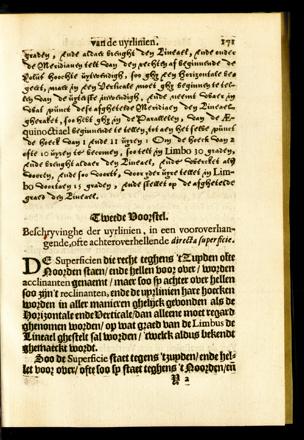 van de uyrlinien. 171
graden, ende aldaer brenght den Lineael, ende onder
de Meridianen telt van den rechten af beginnende de
Polus hooghte uytwendigh, soo ghy een Horizontale be-
geert, maer in een Verticale moet ghy beginnen te tel-
len van de uyterste inwendigh, ende neemt waer in
wat punct de selve afgetelde Meridiaen den Lineael
gheraket, soo hebt ghy in de Parallelen, van de Æ-
quinoctiael beginnende te tellen, tot aen het selve punct
de hoeck van 1 ende 11 uyren: Om de hoeck van 2
ofte 10 uyren te becomen, soo telt in Limbo 30 graden,
ende brenght aldaer den Lineael, ende werckt als
vooren, ende soo voort, voor yder uyre tellet in Lim-
bo voortaen 15 graden, ende stellet op de afghetelde
graed den Lineael.
Tweede Voorstel.
Beschryvinghe der uyrlinien, in een vooroverhan-
gende, ofte achteroverhellende directa superficie.
DE Superficien die recht teghens 't Zuyden ofte
Noorden staen/ ende hellen voor over/ worden
acclinanten genaemt/ maer soo sy achter over hellen
soo zijn 't reclinanten, ende de uyrlinien hare hoecken
worden in aller manieren ghelijck gevonden als de
Horizontale ende Verticale/ dan alleene moet regard
ghenomen worden/ op wat graed van de Limbus de
Lineael ghestelt sal worden/ 'twelck aldus bekendt
ghemaeckt wordt.
Soo de Superficie staet tegens 't zuyden/ ende hel-
let voor over/ ofte soo sy staet teghens 't Noorden/ eñ